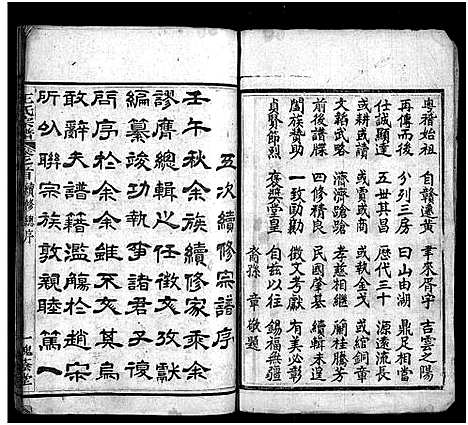 粵稽始祖 自贛遠黃 聿來胥宇 吉雲之陽
再傳而後 分列三房 曰山由湖 鼎足相當
任誠顯達 五世其昌 歷代三十 源遠流長
或耕或讀 或賈或商 或執金戈 或綰銅章
文韜武略 濟濟蹌蹌 孝慈相繼 蘭桂騰芳
前後譜牒 四修精良 民國肇基 續輯未遑
闔族贊助 一致勷勸 徵文考獻 有美必彰
貞賢節烈 褒獎堂皇 自茲以往 錫福無疆
裔孫 章 敬題
五次續修宗譜序
壬午秋余族續修家乘余
謬膺總輯之任徵攷文獻
編纂竣功執事諸君子復
問序於余余雖不亥其烏
敢辭夫譜籍濫觴於趙宋
所以聯宗族敦親睦篤一
王氏宗譜 卷首 續修總序 一 槐蔭堂